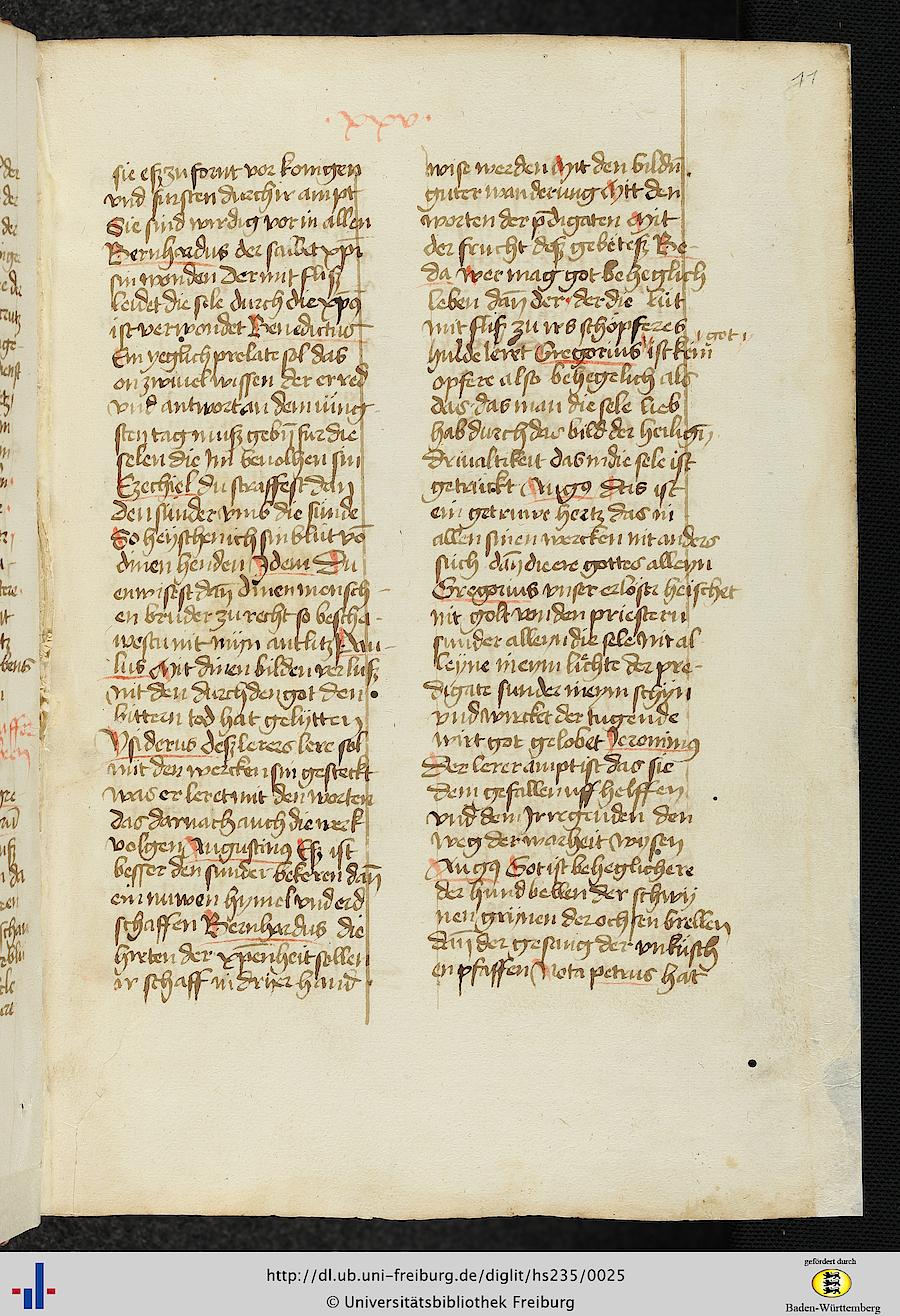 11
sie esz zu fornt vor konigen
vnd fursten durch ir ampt
Sie sind wirdig vor in allen
Bernhardus der salbet xp̄i
sin wonden Der mit flisz
leidet die sele durch die xp̄us
ist verwondet Benedictus
Ein yeglich prelate sol das
on zwiuel wissen der er red
vnd antwort an dem iüng
sten tag musz gebn̄ fur die
selen die Im beuolhen sin
Ezechiel du straffest dan
den sünder vmb die sünde
So heyschen ich sin blüt võ
dinen henden Idem Du
enwisest dan̄ dinen mensch
en bruder zu recht so bescha
westu nit mÿn antlitz Pau
lus Mit dinen bilden verlusz
nit den durch den got den
bittern tod hat gelÿtten
Ysiderus desz lerers lere sol
mit den wercken sin gesteckt
was er leret mit den worten
das darnach auch die werk
volgen Augustinus Esz ist
besser den sunder bekeren dan̄
ein nuwen hymel vnd erd
schaffen Bernhardus die
hirten der xp̄enheit sollen
ir schaff in drÿer hand
wise werden Mit den bildn̄
guter wanderung Mitt den
worten der p̄digaten Mit
der frucht desz gebetesz Be
da Wer mag got beheglich
leben dan̄ der der die lüt
mit flisz zu irs schöpferes
hulde leret Gregorius ist kein got
opfere also behegelich als
das das man die sele lieb
hab durch das bild der heiligen
driualtikeit das in die sele ist
getrückt Augus Das ist
ein getruwe hertz das in
allen sinen wercken nit anders
such dan die ere gottes alleyn
Gregorius vnser erlöser heischet
nit golt von den priestern
sunder alleyn die sele Nit al
leyne meynn lichte der pre
digate sunder meym schyn
vnd wircket der tugende
wirt got gelobet Jeronimus
Der lerer ampt ist das sie
dem gefallen uff helffen
vnd dem Irregenden den
weg der warheit wÿsen
Augus Got ist beheglichere
der hund bellen der schwÿ
nen grinen der ochsen brellen
dan̄ der gesang der vnküsch
en pfaffen Nota petrus hat
http://dl.ub.uni-freiburg.de/diglit/hs235/0025
© Universitätsbibliothek Freiburg
gefördert durch
Baden-Württemberg